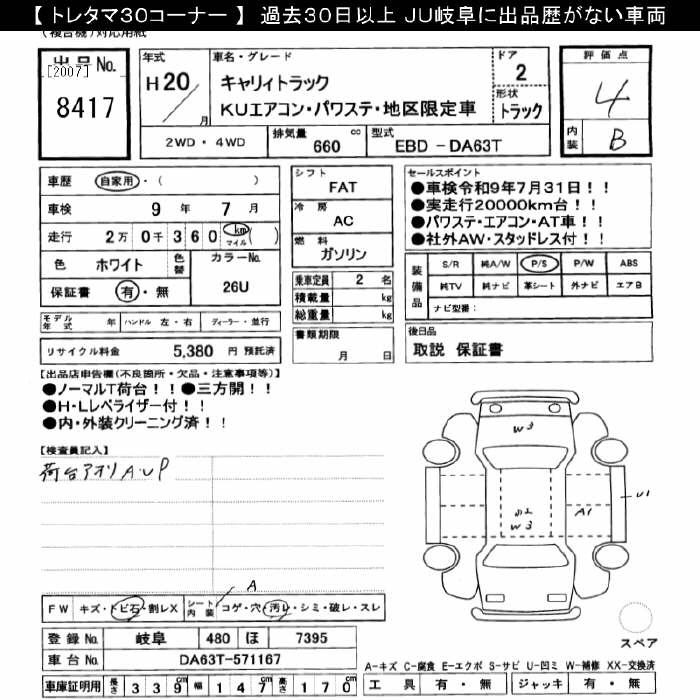 【 トレタマ30コーナー 】 過去30日以上 JU岐阜に出品歴がない車両
(複合機)対応用紙
出品 No.
[2007]
8417
年式
H20/月
車名・グレード
キャリィトラック
KUエアコン・パワステ・地区限定車
ドア
2
形状
トラック
2WD ・ 4WD
排気量 660 cc
型式 EBD - DA63T
評価点
4
内装 B
車歴 自家用・( )
車検 9 年 7 月
走行 2万 0千 3 6 0 km マイル ( )
色 ホワイト 色替
カラーNo. 26U
保証書 有・無
モデル年式 年 ハンドル 左・右 ディーラー・並行
リサイクル料金 5,380 円 預託済
シフト
FAT
冷房
AC
燃料
ガソリン
乗車定員 2 名
積載量 kg
総重量 kg
書類期限
月 日
セールスポイント
●車検令和9年7月31日！！
●実走行20000km台！！
●パワステ・エアコン・AT車！！
●社外AW・スタッドレス付！！
装備品
S/R 純A/W P/S P/W ABS
純TV 純ナビ 革シート 外ナビ エアB
ナビ型番：
後日品
取説 保証書
【出品店申告欄(不良箇所・欠品・注意事項等)】
●ノーマルT荷台！！●三方開！！
●H・Lレベライザー付！！
●内・外装クリーニング済！！
【検査員記入】
荷台アオリA・U P
W3
W3
A1
U1
A
FW キズ・トビ石・割レX
シート内装 コゲ・穴・汚レ・シミ・破レ・スレ
登録 No. 岐阜 480 ほ 7395
車台 No. DA63T-571167
車庫証明用 長さ 339cm 幅 147cm 高さ 170cm
スペア
A-キズ C-腐食 E-エクボ S-サビ U-凹ミ W-補修 XX-交換済
工具 有・無 ジャッキ 有・無